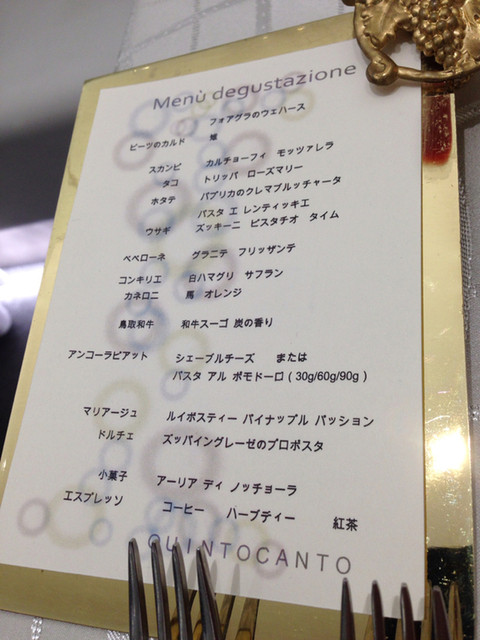 Menù degustazione
フォアグラのウエハース
ビーツのカルド 鮑
スカンピ カルチョーフィ モッツァレラ
タコ トリッパ ローズマリー
ホタテ パプリカのクレマブルッチャータ
パスタ エ レンティッキエ
ウサギ ズッキーニ ピスタチオ タイム
ペペローネ グラニテ フリッザンテ
コンキリエ 白ハマグリ サフラン
カネロニ 馬 オレンジ
鳥取和牛 和牛スーゴ 炭の香り
アンコーラピアット シェーブルチーズ または
パスタ アル ポモドーロ ( 30g/60g/90g )
マリアージュ ルイボスティー パイナップル パッション
ドルチェ ズッパイングレーゼのプロポスタ
小菓子 アーリア ディ ノッチョーラ
エスプレッソ コーヒー ハーブティー 紅茶
QUINTOCANTO